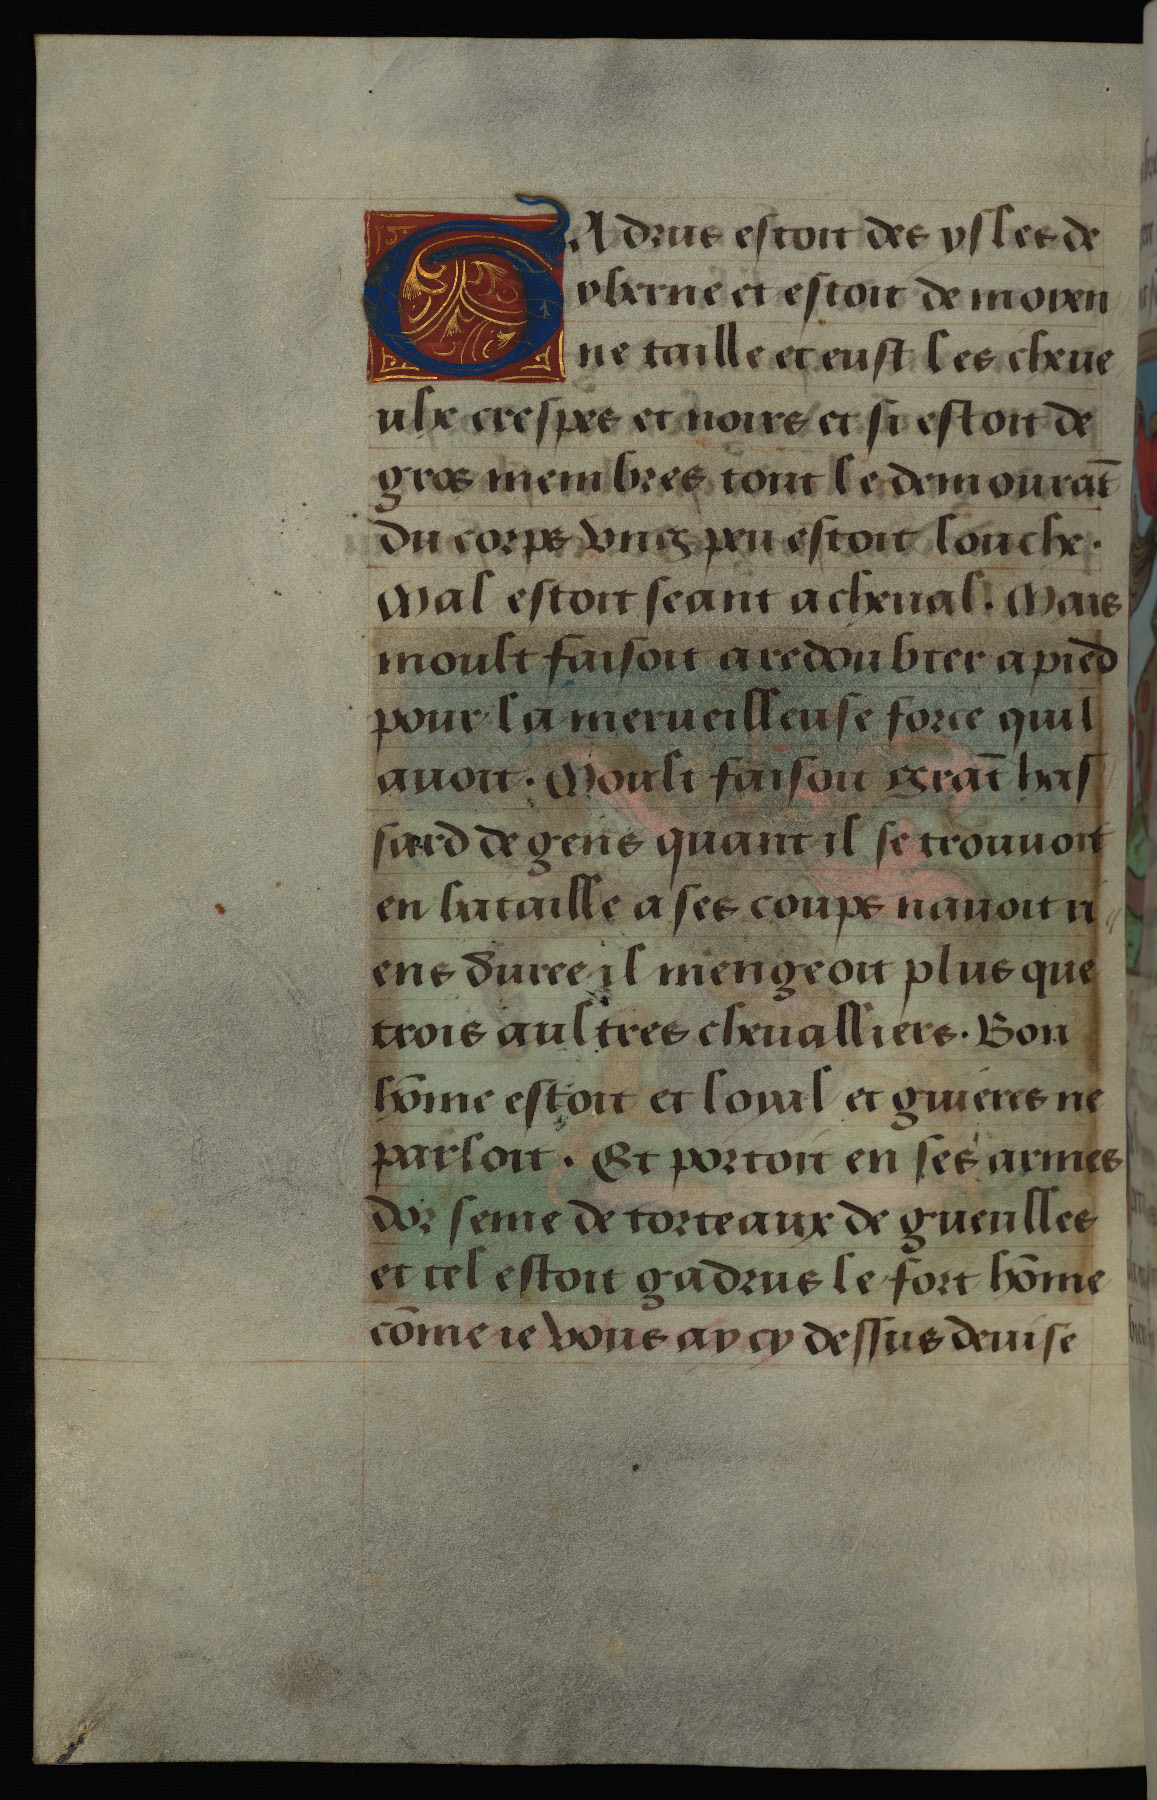 GAdrus estoit des ysles de
yberne et estoit de moyen
ne taille et eust les cheue
ulx crespes et noirs et si estoit de
gros membres tout le demourāt
du corps vng peu estoit louche.
Mal estoit seant a cheual. Mais
moult faisoit a redoubter a pied
pour la merueilleuse force quil
auoit. Moult faisoit grāt has
sard de gens quant il se trouuoit
en bataille a ses coups nauoit ri
ens duree il mengeoit plus que
trois aultres cheualliers. Bon
hōme estoit et loyal et guieres ne
parloit. Et portoit en ses armes
dor seme de torteaux de gueulles
et tel estoit gadrus le fort hōme
cōme ie vous ay cy dessus deuise